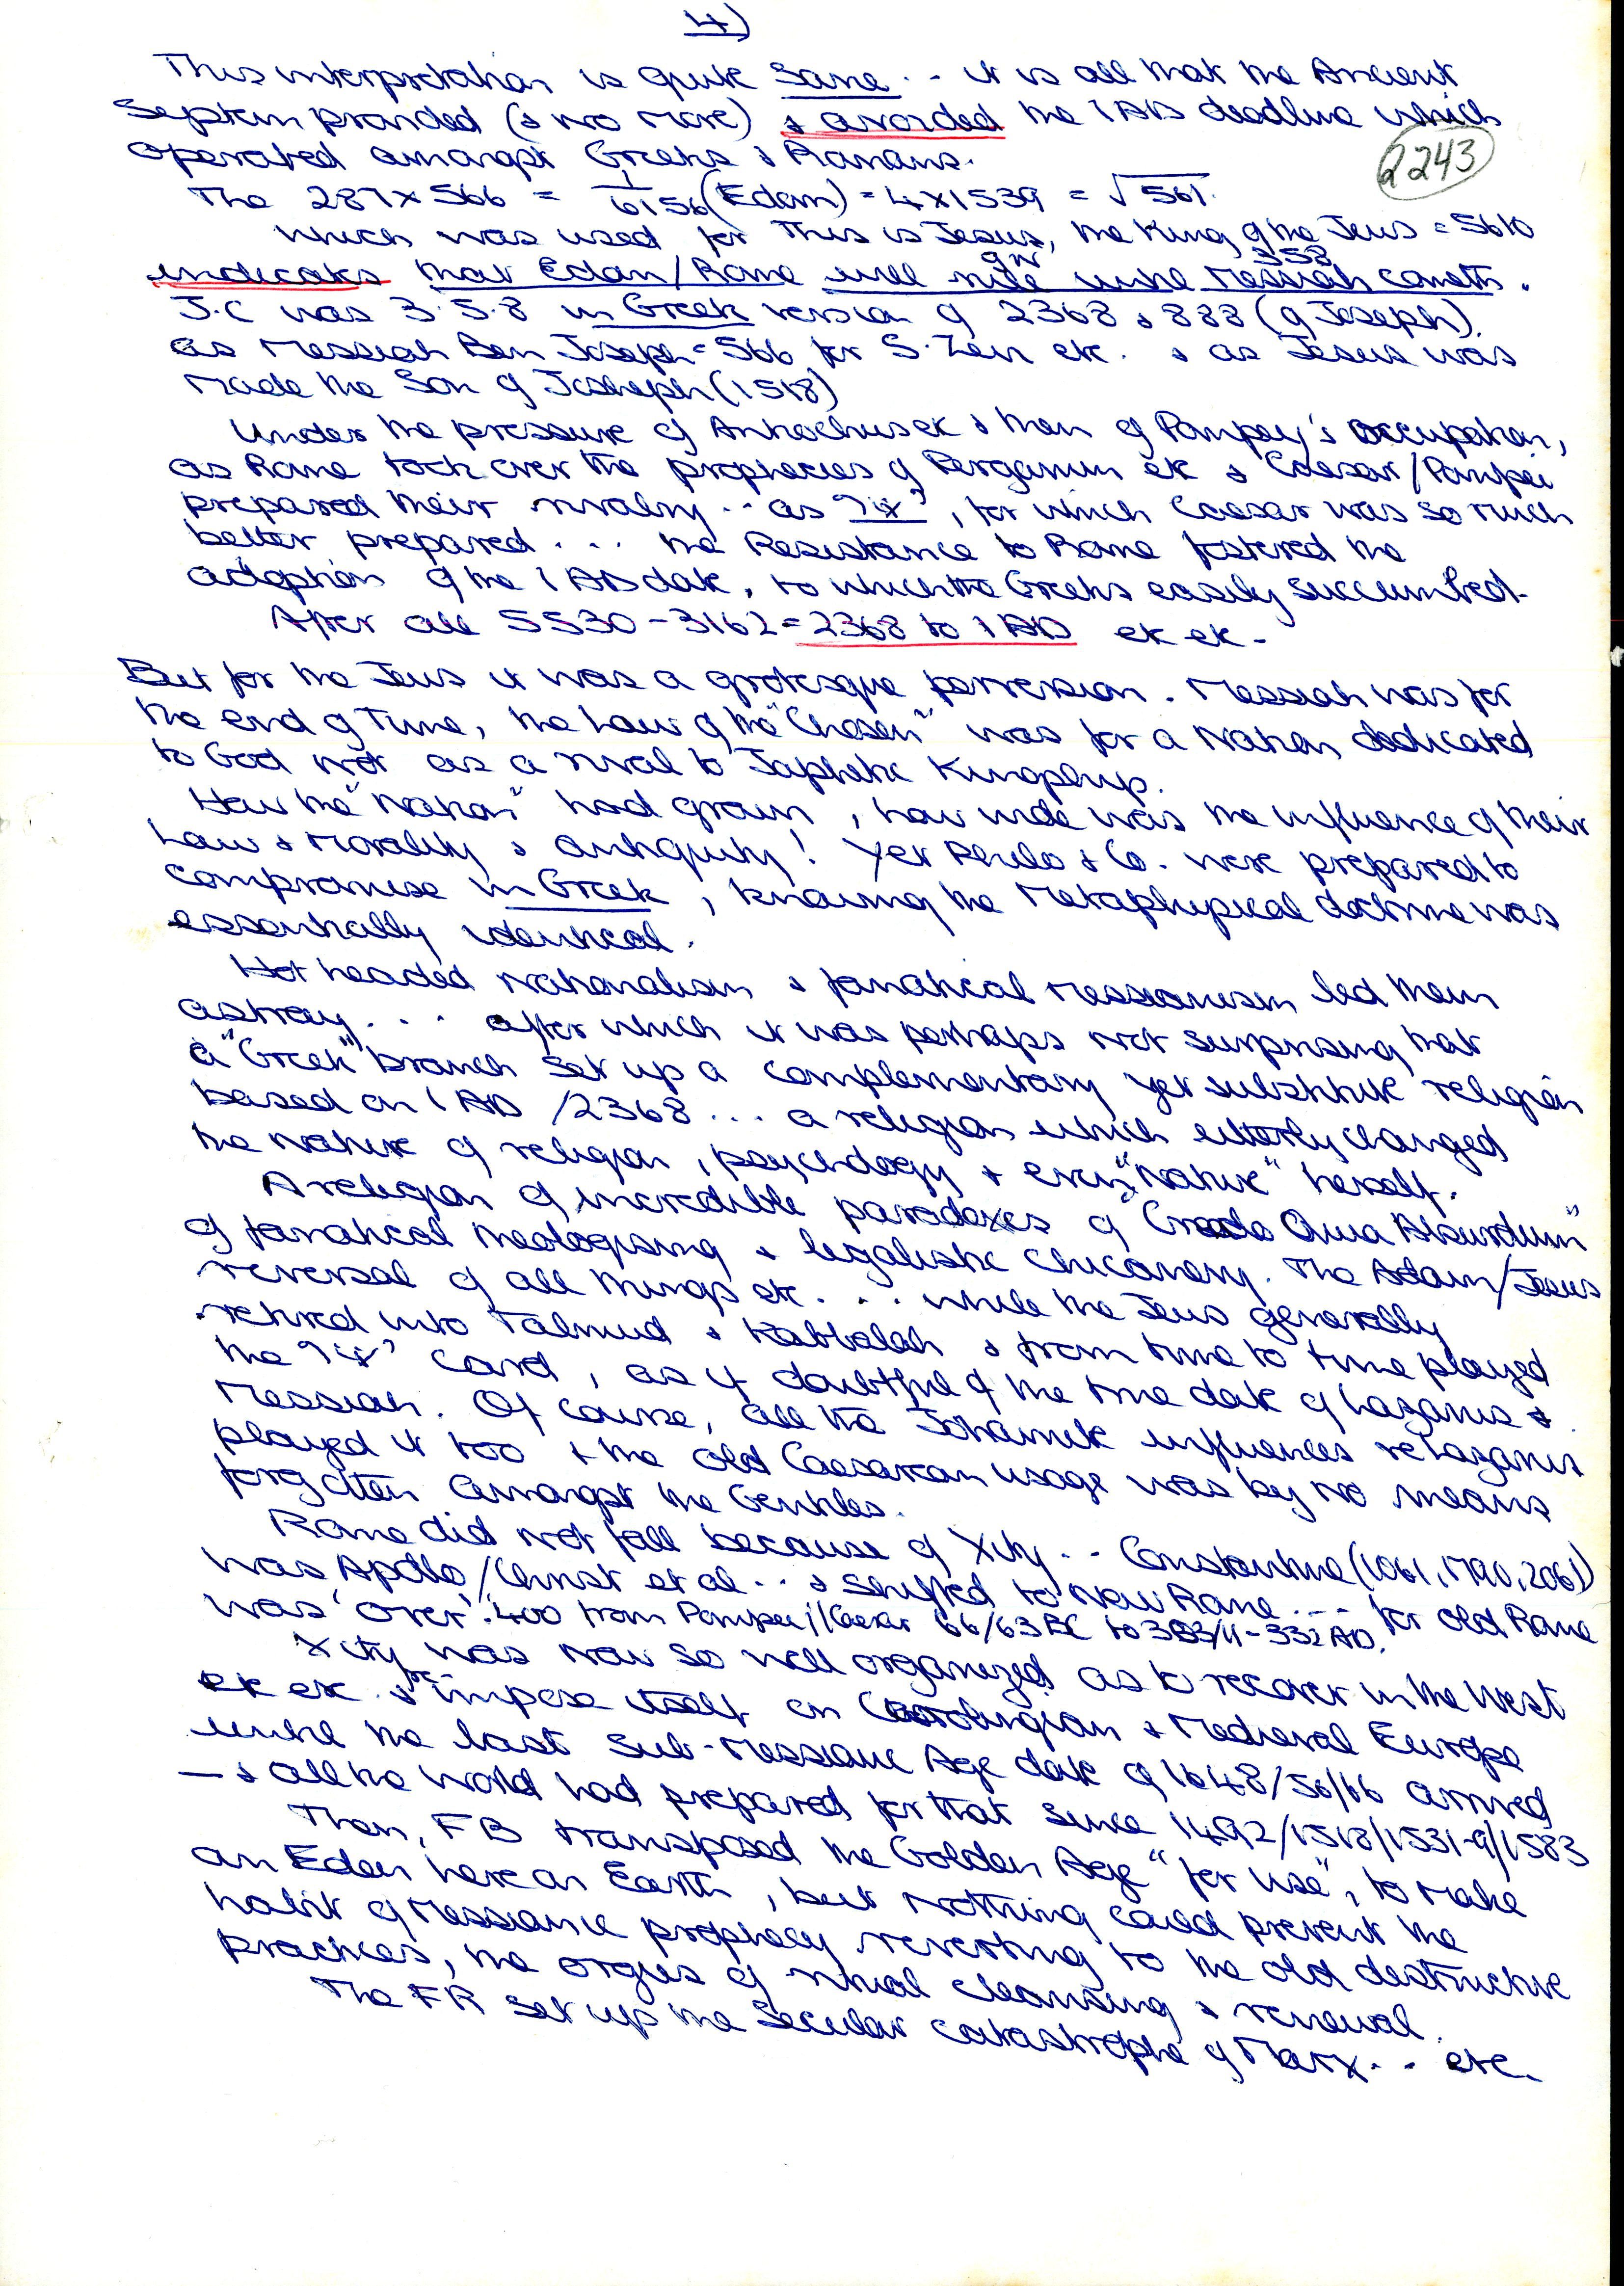 4)
This interpretation is quite sane .. it is all that the Ancient
System provided (& no more) & avoided the 1 AD deadline which
operated amongst Greeks & Romans.
2243
The 287 x 566 = 1/6156 (Edom) = 4 x 1539 = √561.
which was used for This is Jesus, the King of the Jews = 5610
indicates that Edom/Rome will rule until Messiah cometh.
358
J.C was 3.5.8 in Greek version of 2368 & 888 (of Joseph).
as Messiah Ben Joseph = 566 for S. Zevi etc. & as Jesus was
made the Son of Joseph (1518)
Under the pressure of Antiochus etc & then of Pompey's occupation,
as Rome took over the prophecies of Pergamum etc & Caesar/Pompei
prepared their rivalry .. as , for which Caesar was so much
better prepared ... the Resistance to Rome fostered the
adoption of the 1 AD date, to which the Greeks easily succumbed.
After all 5530 - 3162 = 2368 to 1 AD etc etc -
But for the Jews it was a grotesque perversion. Messiah was for
the end of Time, the Law of the "Chosen" was for a Nation dedicated
to God not as a rival to Japhetic Kingship.
How the "Nation" had grown, how wide was the influence of their
Law & Morality & antiquity! Yet Philo & Co. were prepared to
compromise in Greek, knowing the Metaphysical doctrine was
essentially identical.
Hot headed Nationalism & fanatical Messianism led them
astray ... after which it was perhaps not surprising that
a "Greek" branch set up a complementary yet substitute religion
based on 1 AD /2368 ... a religion which utterly changed
the nature of religion, psychology & even "Nature" herself.
A religion of incredible paradoxes of "Credo Quia Absurdum"
of fanatical theologising & legalistic chicanery. The Adam/Jesus
reversal of all things etc ... while the Jews generally
retired into Talmud & Kabbalah & from time to time played
the card, as if doubtful of the true date of Lazarus &
Messiah. Of course, all the Johannite influences re Lazarus
played it too & the old Caesarean usage was by no means
forgotten amongst the Gentiles.
Rome did not fall because of Xity .. Constantine (1061, 1790, 2061)
was Apollo/Christ et al .. & shifted to New Rome ... for old Rome
was 'over'. 400 from Pompei/Caesar 66/63 BC to 333/11 - 332 AD.
Xity was now so well organized as to recover in the West
etc etc & impose itself on Carolingian & Medieval Europe
until the last Sub-Messianic Age date of 1648/56/66 arrived
— & all the World had prepared for that since 1492/1518/1531-9/1583
Then, FB transposed the Golden Age "for use", to make
an Eden here on Earth, but nothing could prevent the
habit of Messianic prophecy reverting to the old destructive
practices, the orgies of ritual cleansing & renewal.
The FR set up the Secular catastrophe of Marx .. etc.